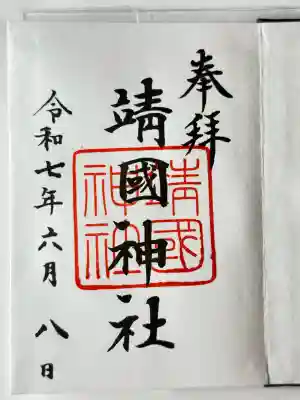 奉拝
靖國神社
靖國
神社
令和七年六月八日